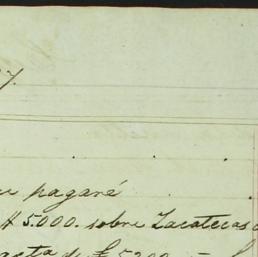 7.
pagaré
$ 5.000. sobre Zacatecas
de $ 5200 =